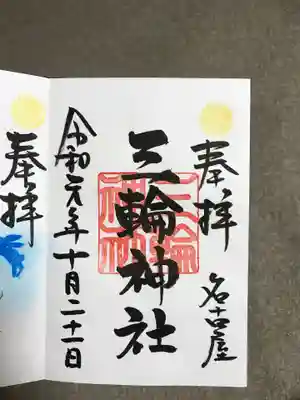 奉拝
名古屋
三輪神社
三輪神社
令和元年十月二十一日
奉拝